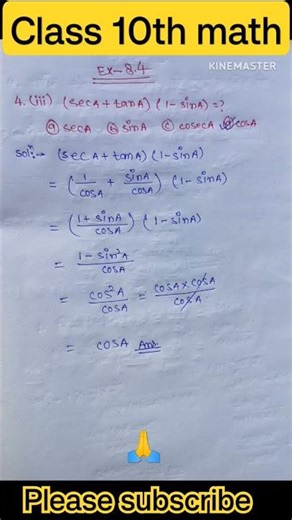 Class 10th math
KINEMASTER
Ex-8.4
4. (iii) (secA + tanA) (1-sinA) = ?
ⓐ secA ⓑ sinA ⓒ cosecA ⓓ cosA
Solⁿ:→ (secA + tanA) (1-sinA)
= (1/cosA + sinA/cosA) (1-sinA)
= (1+sinA/cosA) (1-sinA)
= 1-sin²A/cosA
= cos²A/cosA = cosA×cosA/cosA
= cosA Ans.
Please subscribe